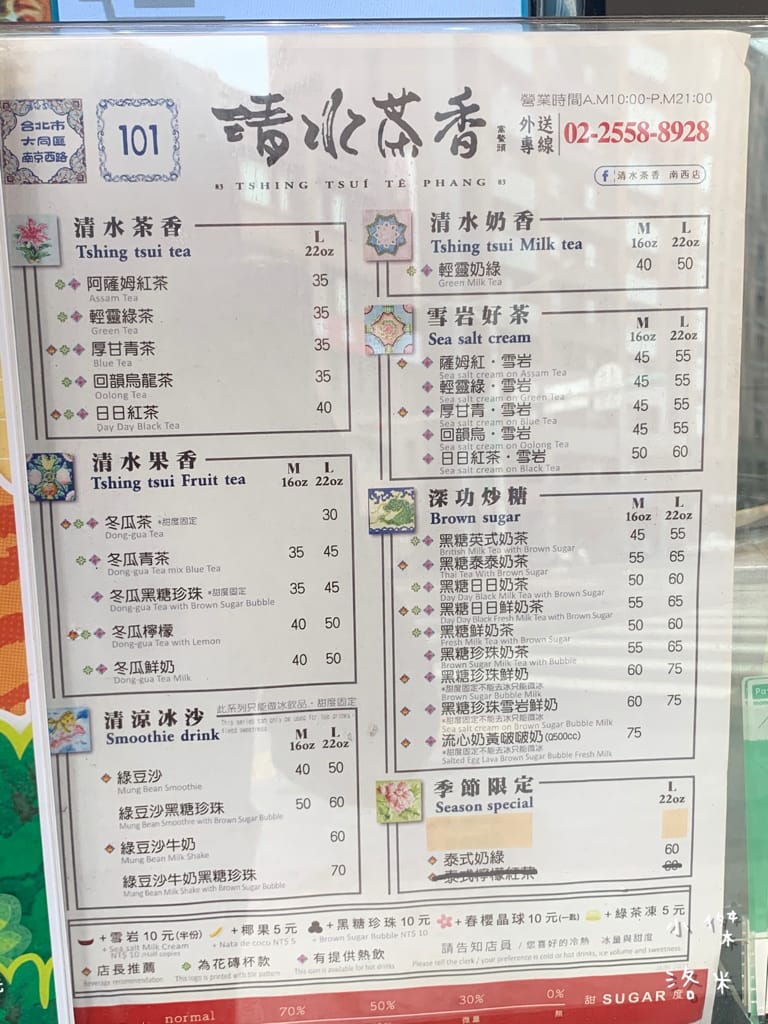 台北市
大同區
南京西路
101
清水茶香
富發頭
83 TSHING TSUÍ TÊ PHANG 83
營業時間A.M10:00-P.M21:00
外送專線 02-2558-8928
清水茶香 南西店
清水茶香
Tshing tsui tea
L
22oz
阿薩姆紅茶 35
Assam Tea
輕靈綠茶 35
Green Tea
厚甘青茶 35
Blue Tea
回韻烏龍茶 35
Oolong Tea
日日紅茶 40
Day Day Black Tea
清水果香
Tshing tsui Fruit tea
M L
16oz 22oz
冬瓜茶 *甜度固定 30
Dong-gua Tea
冬瓜青茶 35 45
Dong-gua Tea mix Blue Tea
冬瓜黑糖珍珠 *甜度固定 35 45
Dong-gua Tea with Brown Sugar Bubble
冬瓜檸檬 40 50
Dong-gua Tea with Lemon
冬瓜鮮奶 40 50
Dong-gua Tea Milk
清涼冰沙 此系列只能做冰飲品,甜度固定
Smoothie drink
M L
16oz 22oz
綠豆沙 40 50
Mung Bean Smoothie
綠豆沙黑糖珍珠 50 60
Mung Bean Smoothie with Brown Sugar Bubble
綠豆沙牛奶 60
Mung Bean Milk Shake
綠豆沙牛奶黑糖珍珠 70
Mung Bean Milk Shake with Brown Sugar Bubble
清水奶香
Tshing tsui Milk tea
M L
16oz 22oz
輕靈奶綠 40 50
Green Milk Tea
雪岩好茶
Sea salt cream
M L
16oz 22oz
薩姆紅・雪岩 45 55
Sea salt cream on Assam Tea
輕靈綠・雪岩 45 55
Sea salt cream on Green Tea
厚甘青・雪岩 45 55
Sea salt cream on Blue Tea
回韻烏・雪岩 45 55
Sea salt cream on Oolong Tea
日日紅茶・雪岩 50 60
Sea salt cream on Black Tea
深功炒糖
Brown sugar
M L
16oz 22oz
黑糖英式奶茶 45 55
British Milk Tea with Brown Sugar
黑糖泰泰奶茶 55 65
Thai Tea With Brown Sugar
黑糖日日奶茶 50 60
Day Day Black Milk Tea with Brown Sugar
黑糖日日鮮奶茶 55 65
Day Day Black Fresh Milk Tea with Brown Sugar
黑糖鮮奶茶 50 60
Fresh Milk Tea with Brown Sugar
黑糖珍珠奶茶 55 65
Brown Sugar Milk Tea with Bubble
黑糖珍珠鮮奶 60 75
*甜度固定不能去冰只能微冰
Brown Sugar Bubble Milk
黑糖珍珠雪岩鮮奶 60 75
*甜度固定不能去冰只能微冰
Sea salt cream on Brown Sugar Bubble Milk
流心奶黃啵啵奶(Q500cc) 75
*甜度固定不能去冰只能微冰
Salted Egg Lava Brown Sugar Bubble Fresh Milk
季節限定
Season special
L
22oz
泰式奶綠 60
泰式檸檬紅茶 60
+雪岩10元(半份) +椰果5元 +黑糖珍珠10元 +春櫻晶球10元(一點) +綠茶凍5元
+ Sea salt Milk Cream NT$ 10 /Half copies
+ Nata de coco NT$ 5
+ Brown Sugar Bubble NT$ 10
店長推薦 為花磚杯款 有提供熱飲
Beverage recommendation This logo is printed with tile pattern This icon is available for hot drinks
請告知店員/您喜好的冷熱 冰量與甜度
Please tell the clerk / your preference is cold or hot drinks, ice volume and sweetness
normal 70% 50% 30% 0% 甜 SUGAR 度
微 無
小傑洛米